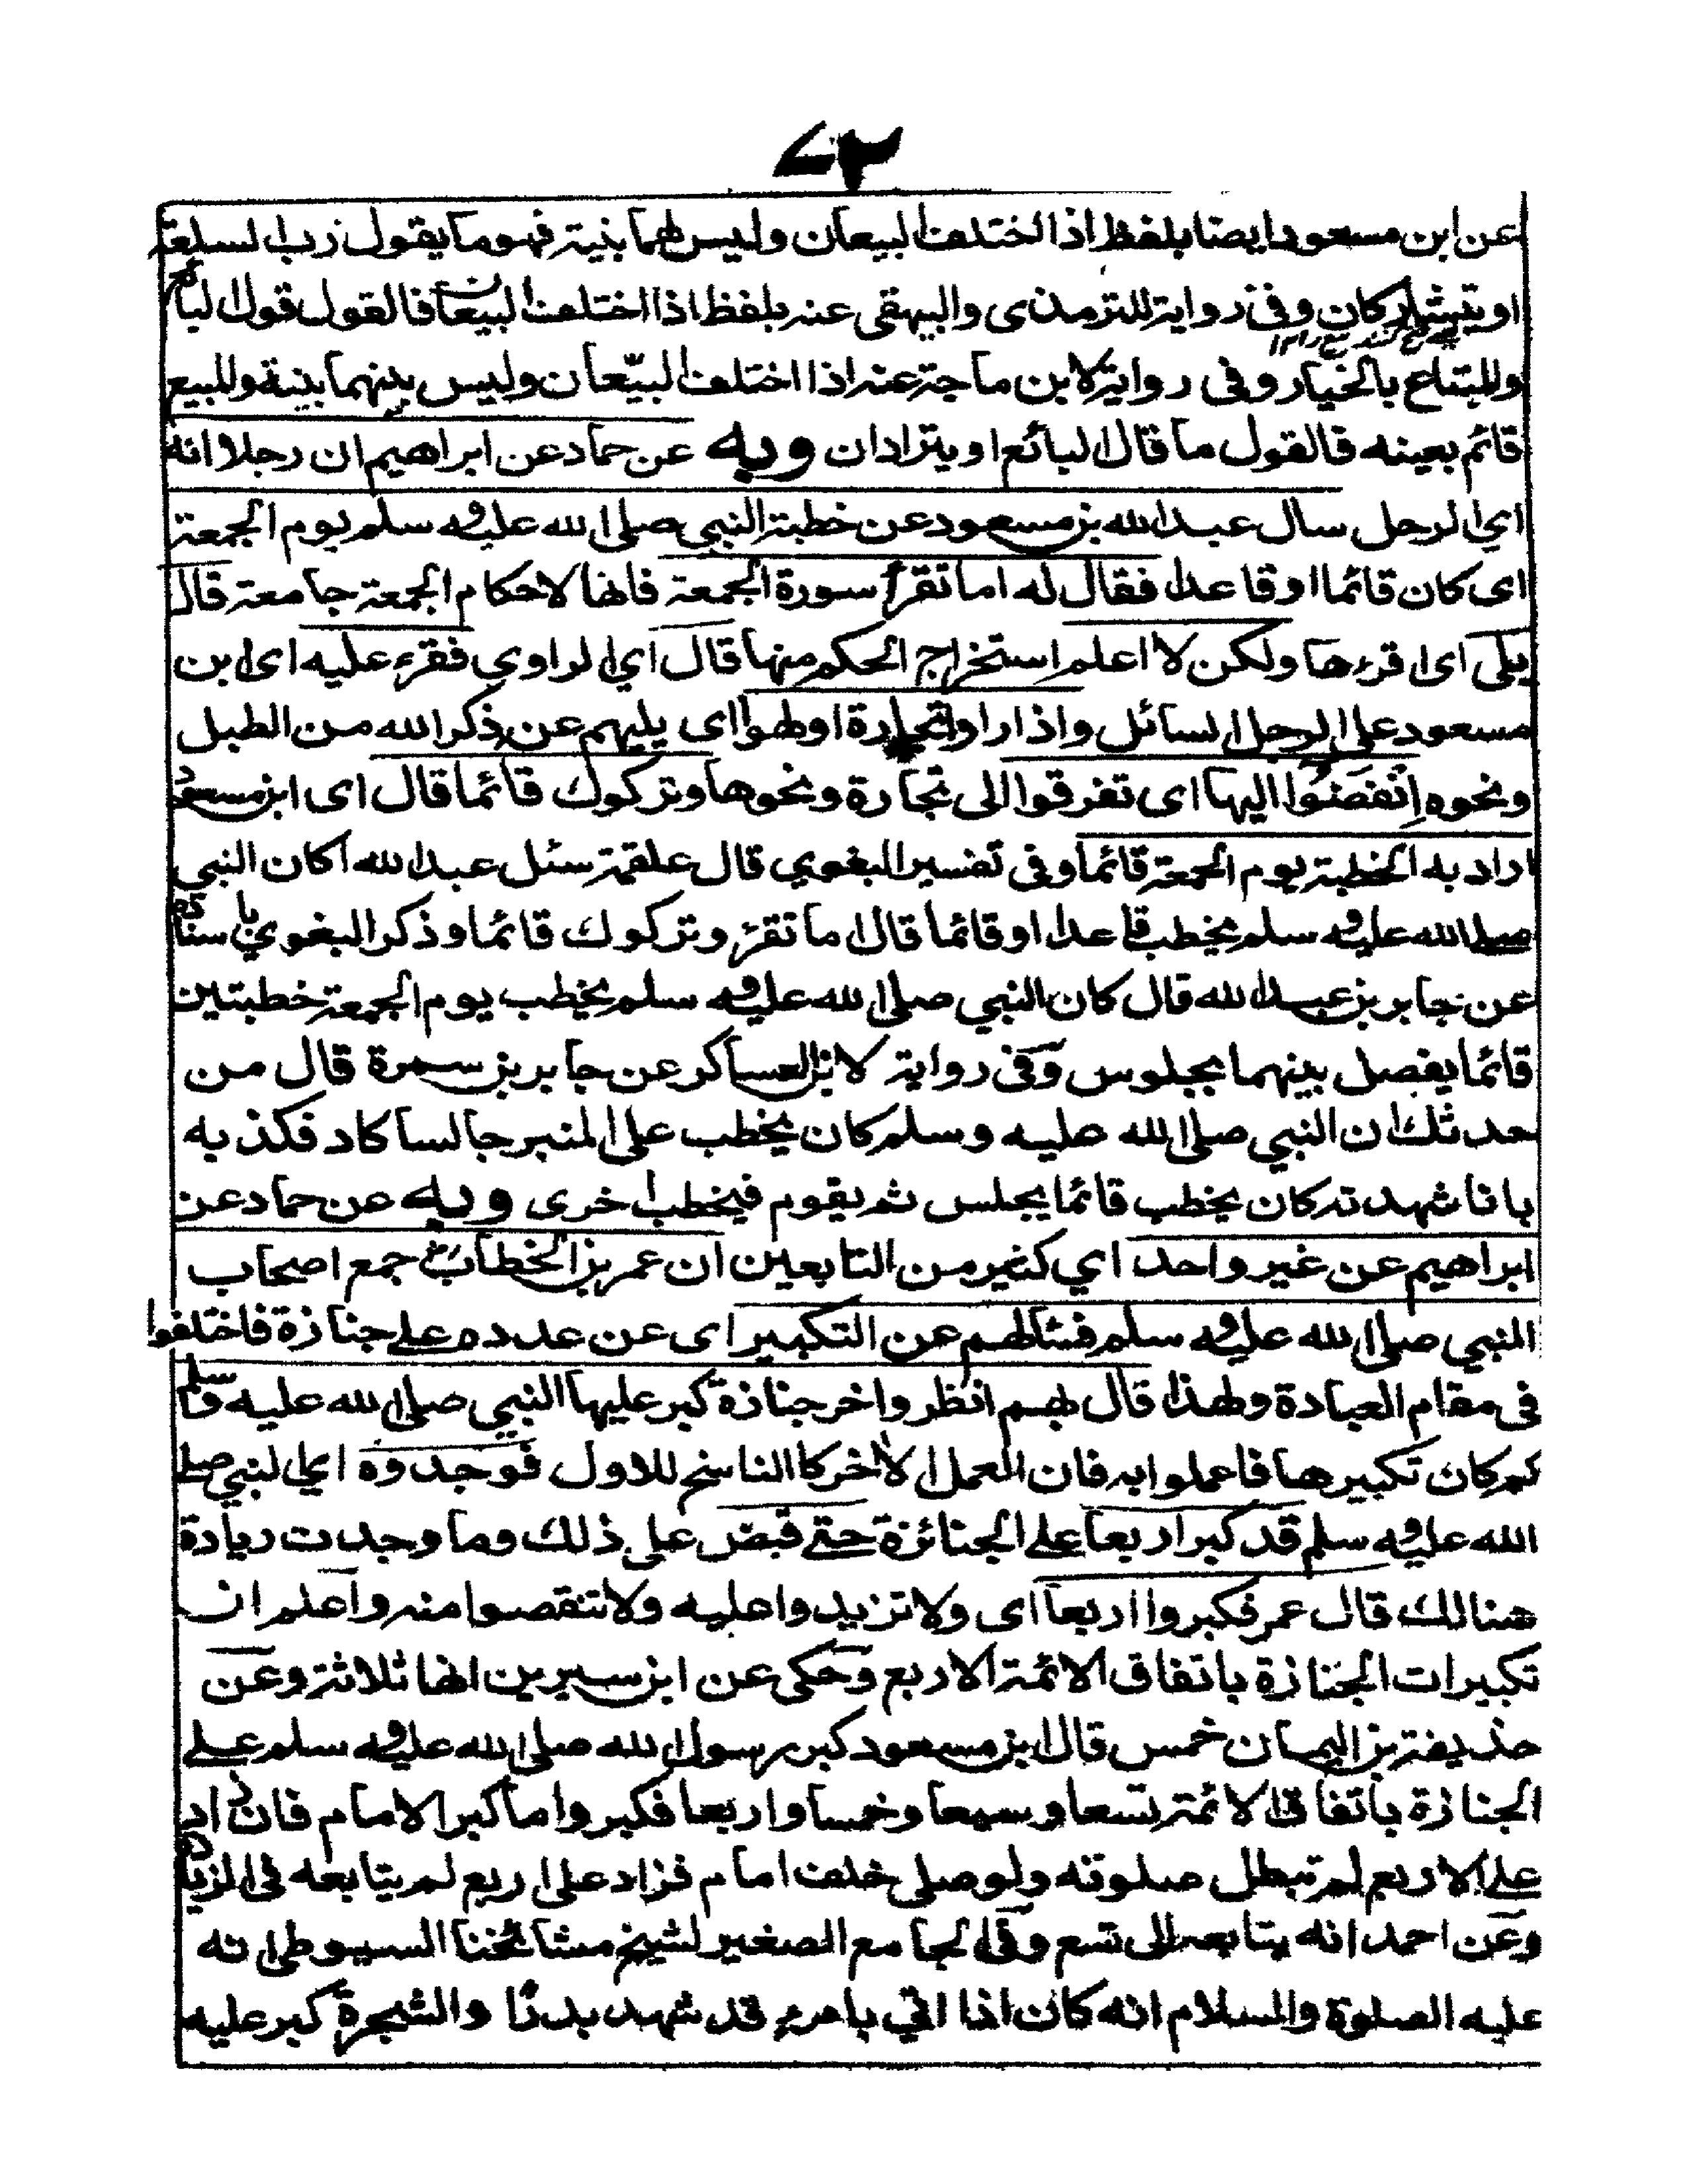 ٧٢
عن ابن مسعود ايضا بلفظ اذا اختلف البيعان وليس لهما بنية فهو ما يقول رب السلعة
او يتشاركان وفي رواية للترمذى والبيهقى عنه بلفظ اذا اختلف البيعان فالقول قول البائع
وللبتاع بالخيار وفى رواية لابن ماجة عنه اذا اختلف البيّعان وليس بينهما بنية وللبيع
قائم بعينه فالقول ما قال البائع او يترادان وبه عن حماد عن ابراهيم ان رجلا انه
اي الرجل سال عبد الله بن مسعود عن خطبة النبي صلى الله عليه وسلم يوم الجمعة
اى كان قائما او قاعدا فقال له اما تقرأ سورة الجمعة فانها لاحكام الجمعة جامعة قال
بلى اى اقرءها ولكن لا اعلم استخراج الحكم منها قال اي الراوي فقرء عليه اى ابن
مسعود على الرجل السائل واذا راوا تجارة او لهوا اى يليهم عن ذكر الله من الطبل
ونحوه اِنْفَضُّوا اليها اى تفرقوا الى تجارة ونحوها وتركوك قائما قال اى ابن مسعود
اراد به الخطبة يوم الجمعة قائما وفى تفسير البغوي قال علقمة سئل عبد الله اكان النبي
صلى الله عليه وسلم يخطب قاعدا او قائما قال اما تقرء وتركوك قائما وذكر البغوي باسناده
عن جابر بن عبد الله قال كان النبي صلى الله عليه وسلم يخطب يوم الجمعة خطبتين
قائما يفصل بينهما بجلوس وفى رواية لابن العساكر عن جابر بن سمرة قال من
حدثك ان النبي صلى الله عليه وسلم كان يخطب على المنبر جالسا كاد فكذبه
بانا شهدته كان يخطب قائما يجلس ثم يقوم فيخطب اخرى وبه عن حماد عن
ابراهيم عن غير واحد اي كثير من التابعين ان عمر بن الخطاب رض جمع اصحاب
النبي صلى الله عليه وسلم فسألهم عن التكبير اى عن عدده على جنازة فاختلفوا
فى مقام العبادة ولهذا قال لهم انظروا اخر جنازة كبر عليها النبي صلى الله عليه وسلم
كم كان تكبيرها فاعملوا به فان العمل الاخر كالناسخ للاول فوجدوه اي النبي صلى
الله عليه وسلم قد كبر اربعا على الجنائزة حتى قبض على ذلك وما وجدت زيادة
هنالك قال عمر فكبروا اربعا اى ولا تزيدوا عليه ولا تنقصوا منه واعلم ان
تكبيرات الجنازة باتفاق الائمة الاربع وحكى عن ابن سيرين انها ثلاثة وعن
حذيفة بن اليمان خمس قال ابن مسعود كبر رسول الله صلى الله عليه وسلم على
الجنازة باتفاق الائمة تسعا وسبعا وخمسا واربعا فكبروا ما كبر الامام فان زاد
على الاربع لم تبطل صلوته ولو صلى خلف امام فزاد على اربع لم يتابعه فى الزيادة
وعن احمد انه يتابعه الى تسع وفى الجامع الصغير لشيخ مشائخنا السيوطى انه
عليه الصلوة والسلام انه كان اذا اتي بامرء قد شهد بدرًا والشجرة كبر عليه